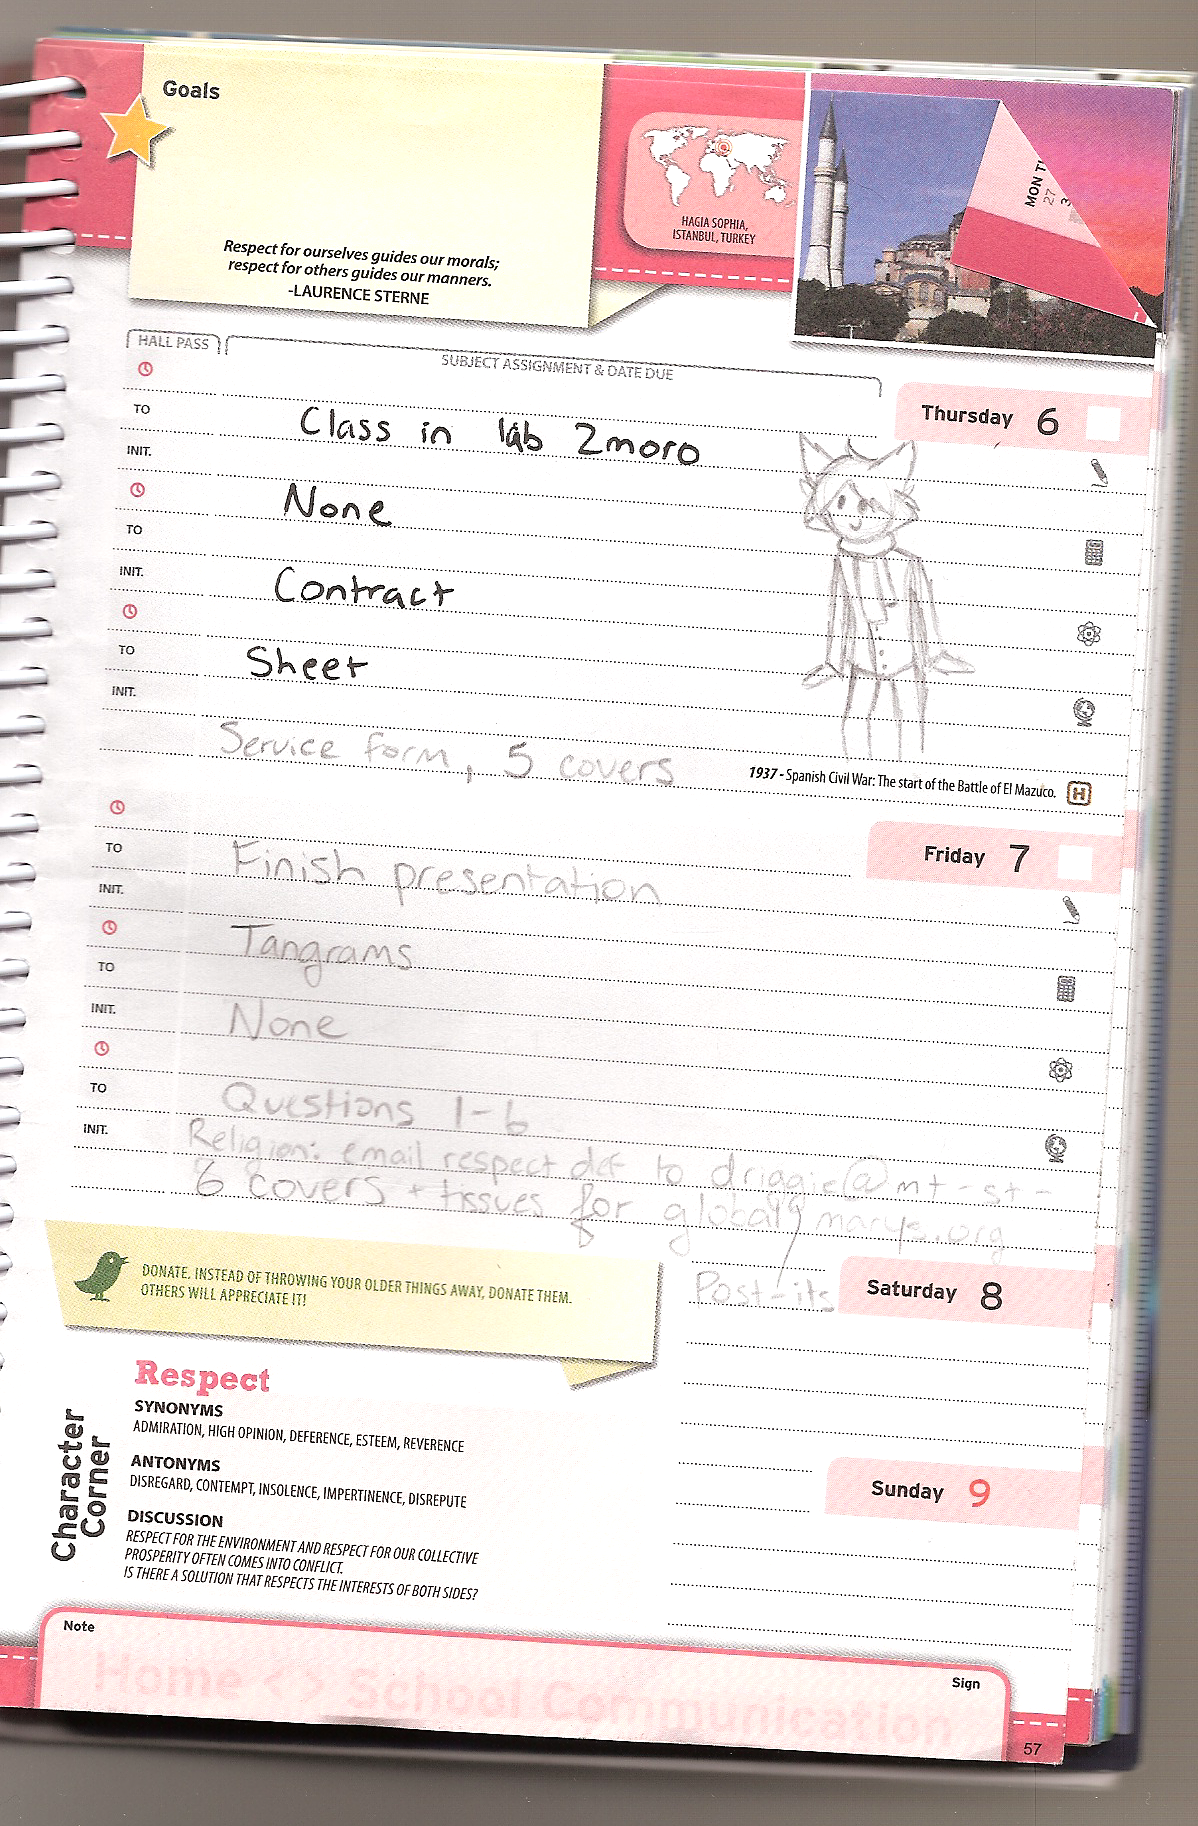 Goals
Respect for ourselves guides our morals;
respect for others guides our manners.
-LAURENCE STERNE
HAGIA SOPHIA,
ISTANBUL, TURKEY
MON
27
HALL PASS
SUBJECT ASSIGNMENT & DATE DUE
Thursday 6
TO
Class in lab 2moro
INIT.
None
TO
INIT.
Contract
TO
Sheet
INIT.
Service form, 5 covers
1937 - Spanish Civil War: The start of the Battle of El Mazuco.
H
Friday 7
TO
Finish presentation
INIT.
Tangrams
TO
INIT.
None
TO
Questions 1-6
INIT.
Religion: email respect def to driggie@mt-st-
marys.org
6 covers + tissues for global
Post-its
Saturday 8
DONATE. INSTEAD OF THROWING YOUR OLDER THINGS AWAY, DONATE THEM.
OTHERS WILL APPRECIATE IT!
Character
Corner
Respect
SYNONYMS
ADMIRATION, HIGH OPINION, DEFERENCE, ESTEEM, REVERENCE
ANTONYMS
DISREGARD, CONTEMPT, INSOLENCE, IMPERTINENCE, DISREPUTE
DISCUSSION
RESPECT FOR THE ENVIRONMENT AND RESPECT FOR OUR COLLECTIVE
PROSPERITY OFTEN COMES INTO CONFLICT.
IS THERE A SOLUTION THAT RESPECTS THE INTERESTS OF BOTH SIDES?
Sunday 9
Note
Home <> School Communication
Sign
57